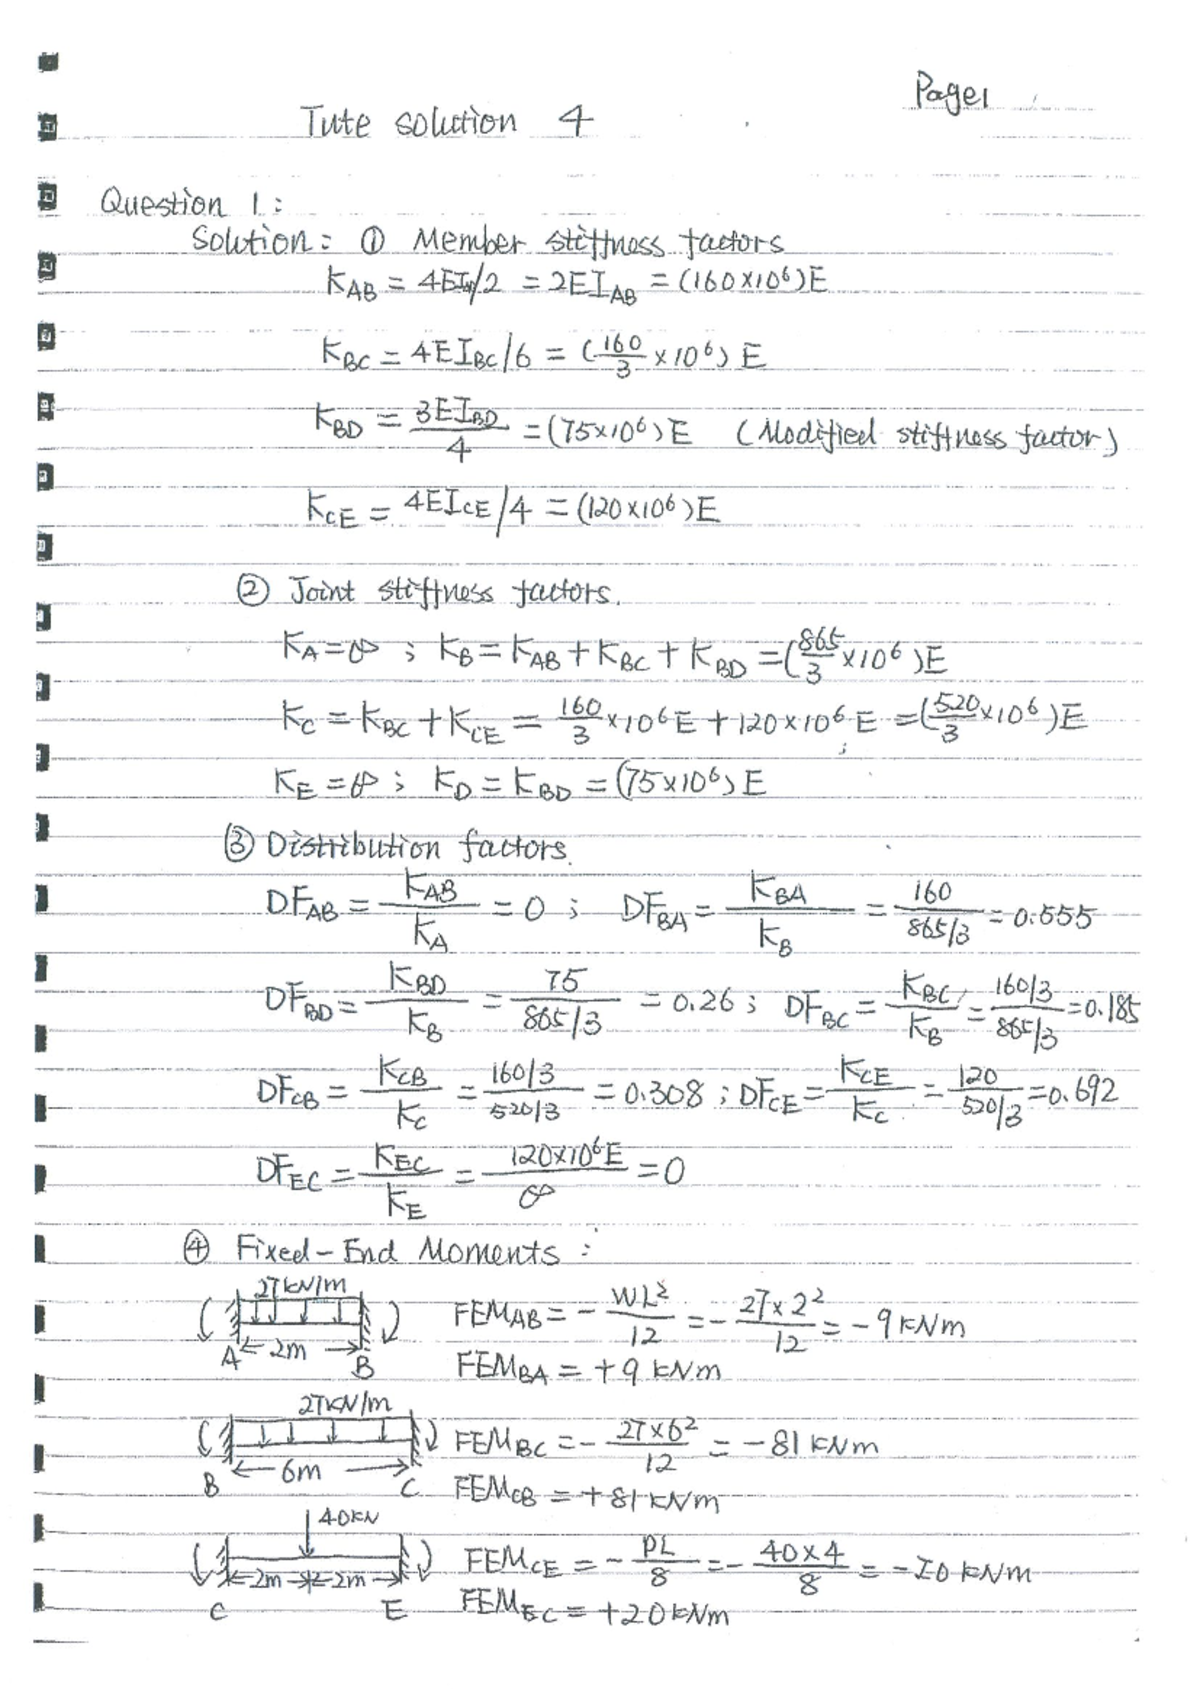 Page1
Tute solution 4
Question 1:
Solution: ① Member stiffness factors
K_AB = 4EI_AB/2 = 2EI_AB = (160×10⁶)E
K_BC = 4EI_BC/6 = (160/3 ×10⁶) E
K_BD = 3EI_BD/4 = (75×10⁶)E (Modified stiffness factor)
K_CE = 4EI_CE/4 = (120×10⁶)E
② Joint stiffness factors.
K_A=∞ ; K_B = K_AB + K_BC + K_BD = (865/3 ×10⁶)E
K_C = K_BC + K_CE = 160/3 ×10⁶E + 120×10⁶E = (520/3 ×10⁶)E
K_E=∞ ; K_D = K_BD = (75×10⁶)E
③ Distribution factors.
DF_AB = K_AB/K_A = 0 ; DF_BA = K_BA/K_B = 160/(865/3) = 0.555
DF_BD = K_BD/K_B = 75/(865/3) = 0.26 ; DF_BC = K_BC/K_B = (160/3)/(865/3) = 0.185
DF_CB = K_CB/K_C = (160/3)/(520/3) = 0.308 ; DF_CE = K_CE/K_C = 120/(520/3) = 0.692
DF_EC = K_EC/K_E = 120×10⁶E/∞ = 0
④ Fixed-End Moments :
27kN/m
A 2m B
FEM_AB = - WL²/12 = - 27×2²/12 = -9 kNm
FEM_BA = +9 kNm
27kN/m
B 6m C
FEM_BC = - 27×6²/12 = -81 kNm
FEM_CB = +81 kNm
40kN
2m 2m
C E
FEM_CE = - PL/8 = - 40×4/8 = -20 kNm
FEM_EC = +20kNm